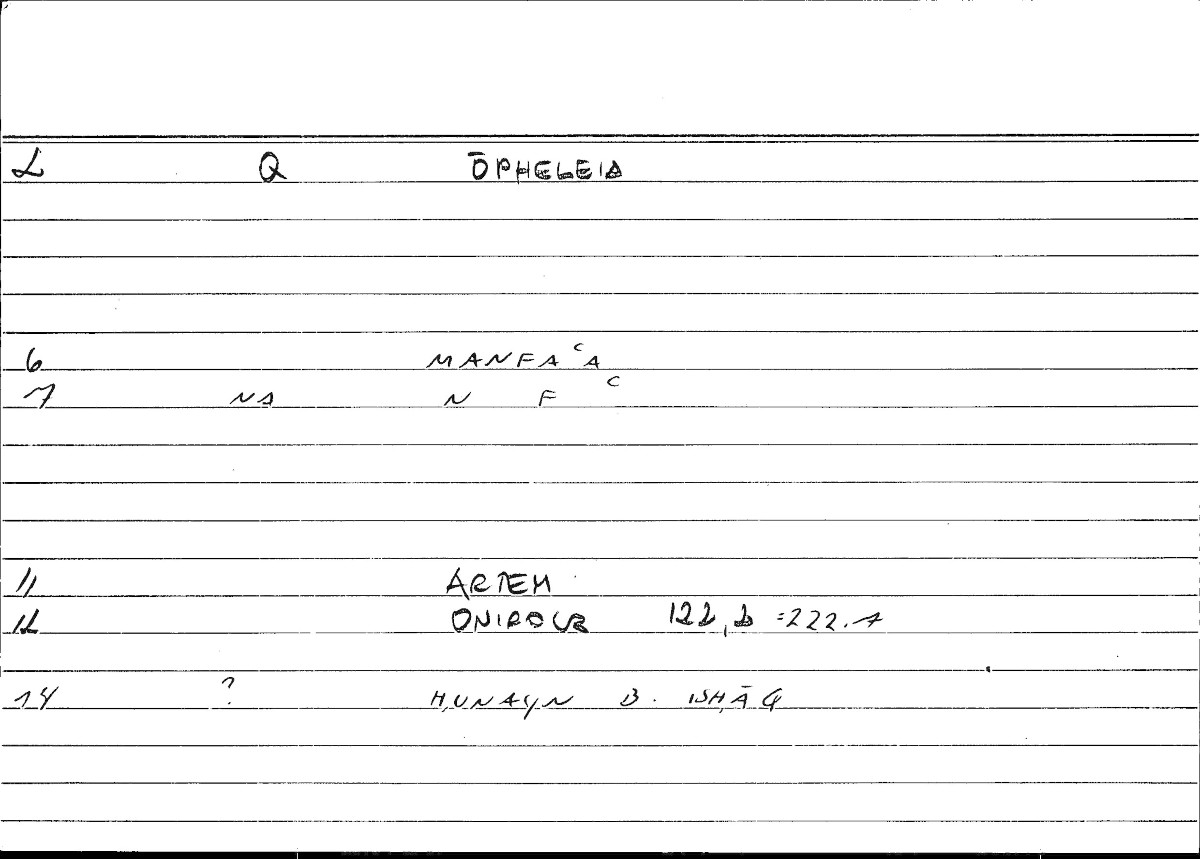 L Q ŌPHELEIA
6 MANFAᶜA
7 NA N F ᶜ
11 ARTEM
12 ONIROCR 122,2 =222.1
14 ? ḤUNAYN B. ISḤĀQ